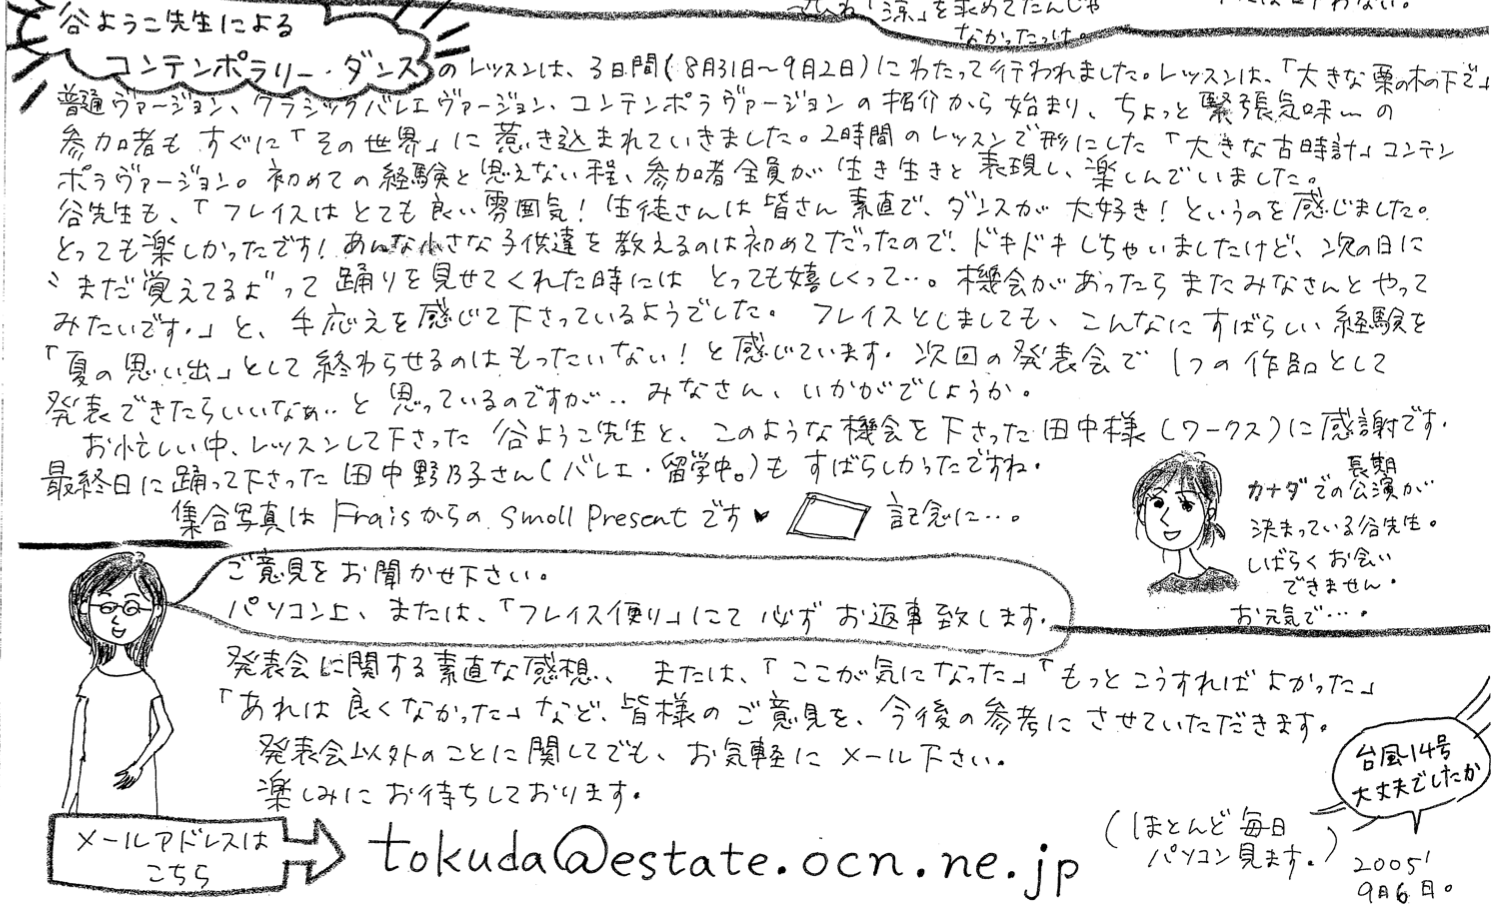 「涼」を求めてたんじゃ
なかったっけ。
谷ようこ先生による
コンテンポラリー・ダンス のレッスンは、3日間(8月31日〜9月2日)にわたって行われました。レッスンは、「大きな栗の木の下で」
普通ヴァージョン、クラシックバレエヴァージョン、コンテンポラヴァージョンの紹介から始まり、ちょっと緊張気味〜の
参加者もすぐに「その世界」に惹き込まれていきました。2時間のレッスンで形にした「大きな古時計」コンテン
ポラヴァージョン。初めての経験と思えない程、参加者全員が生き生きと表現し、楽しんでいました。
谷先生も、「フレイスはとても良い雰囲気!生徒さんは皆さん素直で、ダンスが大好き!というのを感じました。
とっても楽しかったです!あんな小さな子供達を教えるのは初めてだったので、ドキドキしちゃいましたけど、次の日に
〝まだ覚えてるよ〟って踊りを見せてくれた時にはとっても嬉しくって…。機会があったらまたみなさんとやって
みたいです。」と、手応えを感じて下さっているようでした。フレイスとしましても、こんなにすばらしい経験を
「夏の思い出」として終わらせるのはもったいない!と感じています。次回の発表会で1つの作品として
発表できたらいいなぁ‥と思っているのですが‥みなさん、いかがでしょうか。
お忙しい中、レッスンして下さった谷ようこ先生と、このような機会を下さった田中様(ワークス)に感謝です。
最終日に踊って下さった田中野乃子さん(バレエ・留学中。)もすばらしかったですね。
集合写真はFraisからのSmoll Presentです♥ 記念に…。
長期
カナダでの公演が
決まっている谷先生。
しばらくお会い
できません。
お元気で…。
ご意見をお聞かせ下さい。
パソコン上、または、「フレイス便り」にて必ずお返事致します。
発表会に関する素直な感想、または、「ここが気になった」「もっとこうすればよかった」
「あれは良くなかった」など、皆様のご意見を、今後の参考にさせていただきます。
発表会以外のことに関してでも、お気軽にメール下さい。
楽しみにお待ちしております。
メールアドレスは
こちら
tokuda@estate.ocn.ne.jp
(ほとんど毎日
パソコン見ます。)
台風14号
大丈夫でしたか
2005'
9月6日。